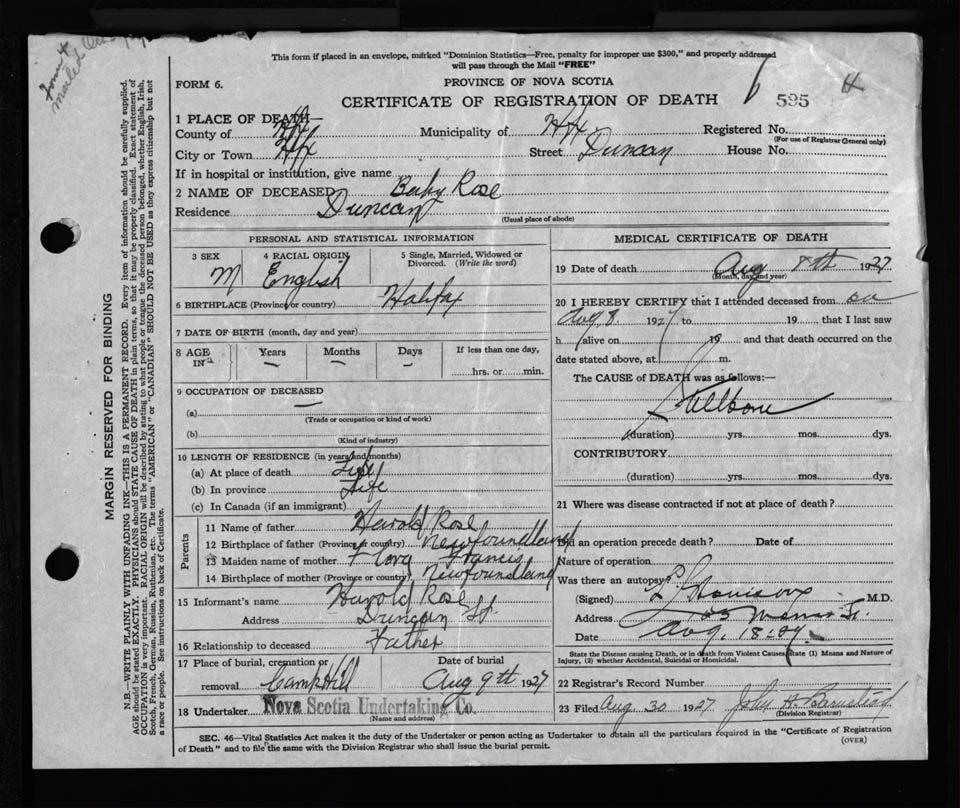 This form if placed in an envelope, marked "Dominion Statistics—Free, penalty for improper use $300," and properly addressed
will pass through the Mail "FREE"
FORM 6.
PROVINCE OF NOVA SCOTIA
CERTIFICATE OF REGISTRATION OF DEATH 6 595 4
1 PLACE OF DEATH—
County of Hfx Municipality of Hfx Registered No.
(For use of Registrar General only)
City or Town Hfx Street Duncan House No.
If in hospital or institution, give name
2 NAME OF DECEASED Baby Rose
Residence Duncan
(Usual place of abode)
PERSONAL AND STATISTICAL INFORMATION
3 SEX 4 RACIAL ORIGIN 5 Single, Married, Widowed or
Divorced. (Write the word)
M English
6 BIRTHPLACE (Province or country) Halifax
7 DATE OF BIRTH (month, day and year)
8 AGE IN Years Months Days If less than one day,
— — — hrs. or min.
9 OCCUPATION OF DECEASED —
(a)
(Trade or occupation or kind of work)
(b)
(Kind of industry)
10 LENGTH OF RESIDENCE (in years and months)
(a) At place of death Life
(b) In province Life
(c) In Canada (if an immigrant)
Parents
11 Name of father Harold Rose
12 Birthplace of father (Province or country) Newfoundland
13 Maiden name of mother Flora Francis
14 Birthplace of mother (Province or country) Newfoundland
15 Informant's name Harold Rose
Address Duncan St.
16 Relationship to deceased Father
17 Place of burial, cremation or Date of burial
removal Camp Hill Aug 9th 1927
18 Undertaker Nova Scotia Undertaking Co.
(Name and address)
MEDICAL CERTIFICATE OF DEATH
19 Date of death Aug 8th 1927
(Month, day and year)
20 I HEREBY CERTIFY that I attended deceased from on
Aug. 8. 1927 to 19 that I last saw
h alive on 19 and that death occurred on the
date stated above, at m.
The CAUSE of DEATH was as follows:—
Stillborn
(duration) yrs. mos. dys.
CONTRIBUTORY
(duration) yrs. mos. dys.
21 Where was disease contracted if not at place of death?
Did an operation precede death? Date of
Nature of operation
Was there an autopsy?
(Signed) M.D.
Address
Date Aug. 18-27.
State the Disease causing Death, or in death from Violent Causes, state (1) Means and Nature of
Injury, (2) whether Accidental, Suicidal or Homicidal.
22 Registrar's Record Number
23 Filed Aug 30 1927 John H. Barnstead
(Division Registrar)
SEC. 46—Vital Statistics Act makes it the duty of the Undertaker or person acting as Undertaker to obtain all the particulars required in the "Certificate of Registration
of Death" and to file the same with the Division Registrar who shall issue the burial permit.
(OVER)
MARGIN RESERVED FOR BINDING
N.B.—WRITE PLAINLY WITH UNFADING INK—THIS IS A PERMANENT RECORD. Every item of information should be carefully supplied.
AGE should be stated EXACTLY. PHYSICIANS should STATE CAUSE OF DEATH in plain terms, so that it may be properly classified. Exact statement of
OCCUPATION is very important. RACIAL ORIGIN will be described by stating to what people or tongue the deceased person belonged, whether English, Irish,
Scotch, French, German, Russian, Ruthenian, etc. The terms "AMERICAN" or "CANADIAN" SHOULD NOT BE USED as they express citizenship but not
a race or people. See instructions on back of Certificate.